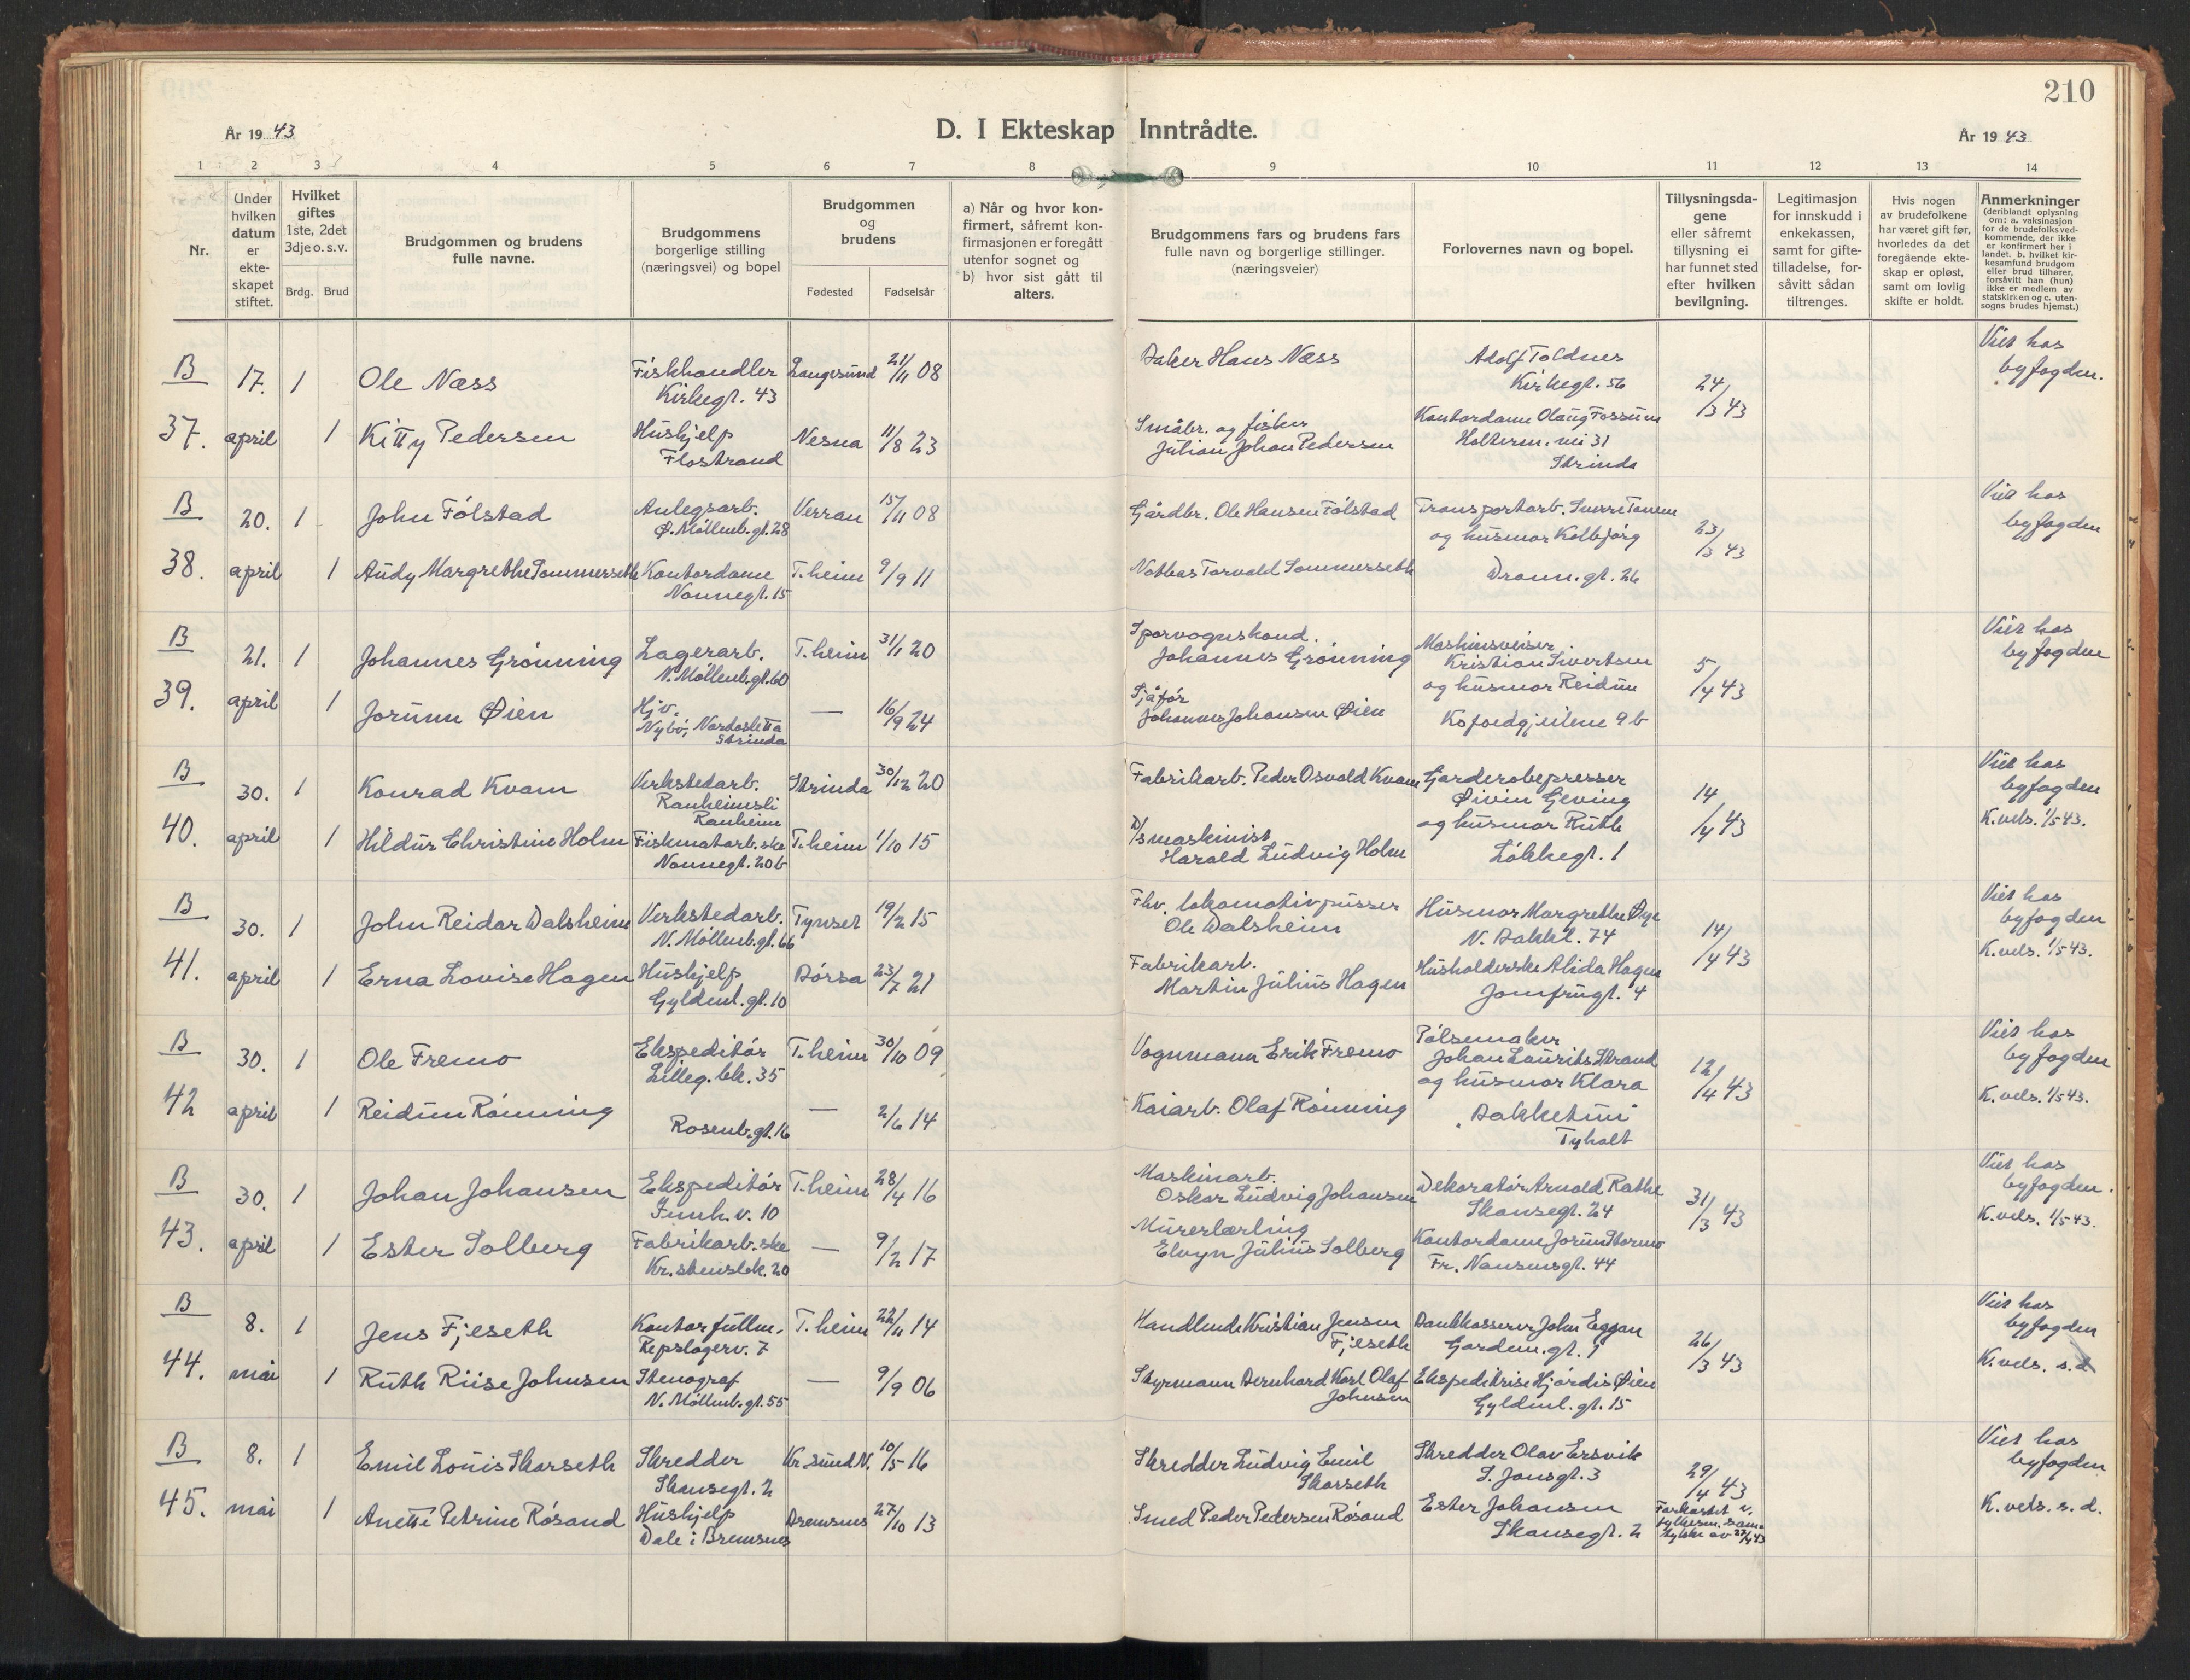 210
År 1943
D. I Ekteskap Inntrådte.
År 1943
1 2 3 4 5 6 7 8 9 10 11 12 13 14
Nr.
Under hvilken datum er ekte-skapet stiftet.
Hvilket giftes 1ste, 2det 3dje o. s. v.
Brdg. Brud
Brudgommen og brudens fulle navne.
Brudgommens borgerlige stilling (næringsvei) og bopel
Brudgommen og brudens
Fødested Fødselsår
a) Når og hvor kon-firmert, såfremt kon-firmasjonen er foregått utenfor sognet og b) hvor sist gått til alters.
Brudgommens fars og brudens fars fulle navn og borgerlige stillinger. (næringsveier)
Forlovernes navn og bopel.
Tillysningsda-gene eller såfremt tillysning ei har funnet sted efter hvilken bevilgning.
Legitimasjon for innskudd i enkekassen, samt for gifte-tilladelse, for-såvitt sådan tiltrenges.
Hvis nogen av brudefolkene har været gift før, hvorledes da det foregående ekte-skap er opløst, samt om lovlig skifte er holdt.
Anmerkninger (deriblandt oplysning om: a. vaksinasjon for de brudefolksved-kommende, der ikke er konfirmert her i landet. b. hvilket kir-kesamfund brudgom eller brud tilhører, forsåvitt han (hun) ikke er medlem av statskirken og c. uten-sogns brudes hjemst.)
B 17. 1 Ole Næss Fiskhandler Kirkegt. 43 Langesund 21/11 08 Baker Hans Næss Adolf Toldnes Kirkegt. 56 24/3 43 Viet hos byfogden.
37. april 1 Kitty Pedersen Hushjelp Flostrand Nesna 11/8 23 Småbr. og fisker Julian Johan Pedersen Kontordame Olaug Fossum Holterm. vei 31 Strinda
B 20. 1 John Følstad Anlegsarb. Ø. Møllenb.gt. 28 Verran 15/11 08 Gårdbr. Ole Hansen Følstad Transportarb. Sverre Tanem og husmor Kolbjørg 23/3 43 Viet hos byfogden
38. april 1 Audy Margrethe Sommerseth Kontordame Nonnegt. 15 T.heim 9/9 11 Torvald Sommerseth Dronn. gt. 26
B 21. 1 Johannes Grønning Lagerarb. N. Møllenb.gt. 60 T.heim 31/1 20 Sporvognskond. Johannes Grønning Maskinsveiser Kristian Sivertsen og husmor Reidun 5/4 43 Viet hos byfogden
39. april 1 Jorunn Øien Hjv. Nybö, Nardosletta Strinda — 16/9 24 Sjåfør Johannes Johansen Øien Kofoedgjeilene 9 b
B 30. 1 Konrad Kvam Verkstedarb. Ranheimsli Ranheim Strinda 30/12 20 Fabrikarb. Peder Osvald Kvam Garderobepresser Øivin Geving og husmor Ruth 14/4 43 Viet hos byfogden
40. april 1 Hildur Christine Holm Fiskmatarb.ske Nonnegt. 20 b T.heim 1/10 15 D/s maskinist Harald Ludvig Holm Løkkegt. 1 K.vels. 1/5 43.
B 30. 1 John Reidar Dalsheim Verkstedarb. N. Møllenb.gt. 66 Tynset 19/2 15 Fhv. lokomotivpusser Ole Dalsheim Husmor Margrethe Øye N. Bakkl. 74 14/4 43 Viet hos byfogden
41. april 1 Erna Lovise Hagen Hushjelp Gyldenl. gt. 10 Børsa 23/7 21 Fabrikarb. Martin Julius Hagen Husholderske Alida Hagen Jomfrugt. 4 K.vels. 1/5 43.
B 30. 1 Ole Fremo Ekspeditør Lilleg. bk. 35 T.heim 30/10 09 Vognmann Erik Fremo Pølsemaker Johan Laurits Strand og husmor Klara 12/4 43 Viet hos byfogden
42 april 1 Reidun Rønning Rosenb. gt. 16 — 2/6 14 Kaiarb. Olaf Rønning Bakketun Tyholt K.vels. 1/5 43.
B 30. 1 Johan Johansen Ekspeditør v. 10 T.heim 28/4 16 Maskinarb. Oskar Ludvig Johansen Dekoratør Arnold Rathe Skansegt. 24 31/3 43 Viet hos byfogden.
43. april 1 Ester Solberg Fabrikarb.ske Kr.stensbk. 20 — 9/2 17 Murerlærling Elvyn Julius Solberg Kontordame Jorun Stormo Fr. Nansensgt. 44 K.vels. 1/5 43.
B 8. 1 Jens Fjeseth Kontorfullm. Repslagerv. 7 T.heim 22/11 14 Handlende Kristian Jensen Fjeseth Bankkasserer John Eggan Gardem. gt. 1 26/3 43 Viet hos byfogden
44. mai 1 Ruth Riise Johnsen Stenograf N. Møllenb.gt. 55 — 9/9 06 Styrmann Bernhard Karl Olaf Johnsen Ekspeditrise Hjørdis Øien Gyldenl. gt. 15 K.vels. s.d.
B 8. 1 Emil Louis Skarseth Skredder Skansegt. 2 Kr.sund N. 10/5 16 Skredder Ludvig Emil Skarseth Skredder Olav Ersvik S. Jonsgt. 3 29/4 43 Viet hos byfogden
45. mai 1 Anetti Petrine Røsand Hushjelp Dale i Bremsnes Bremsnes 27/10 13 Smed Peder Pedersen Røsand Ester Johansen Skansegt. 2 Forkortet v. fylkesm. sam-tykke av 27/4 43 K.vels. s.d.